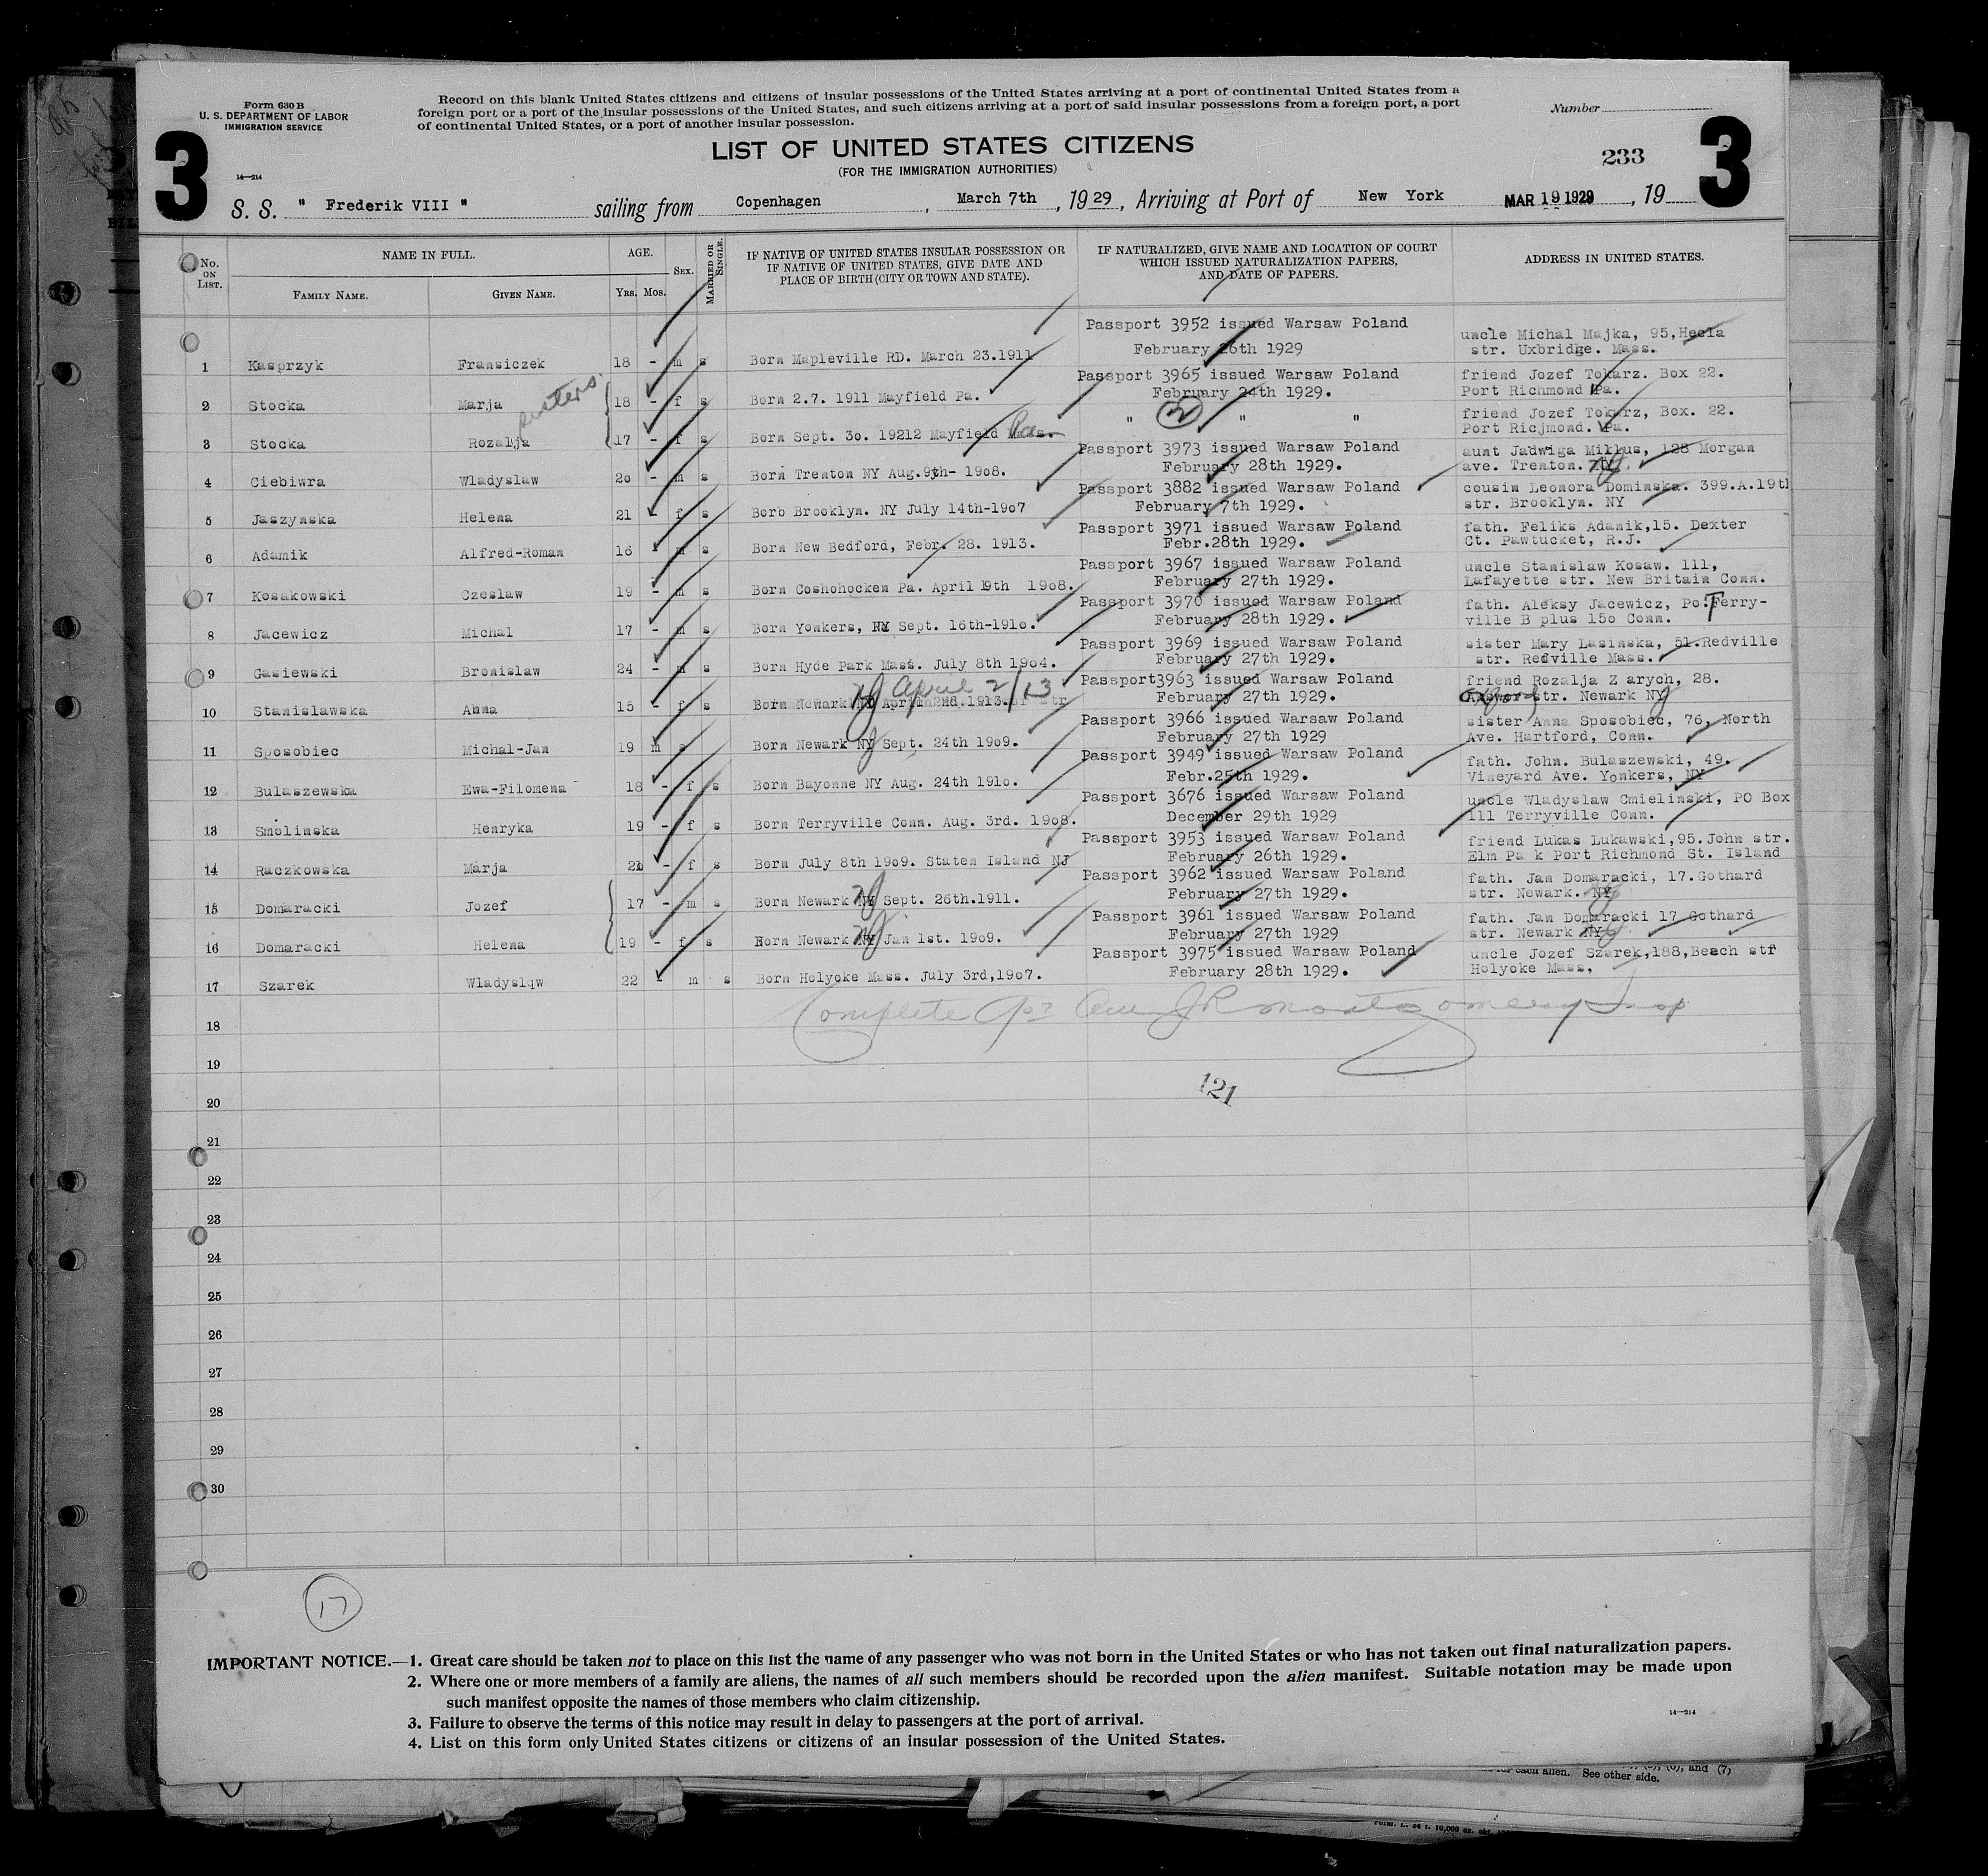 Form 630 B
U. S. DEPARTMENT OF LABOR
IMMIGRATION SERVICE
Record on this blank United States citizens and citizens of insular possessions of the United States arriving at a port of continental United States from a
foreign port or a port of the insular possessions of the United States, and such citizens arriving at a port of said insular possessions from a foreign port, a port
of continental United States, or a port of another insular possession.
Number
3
3
14—214
LIST OF UNITED STATES CITIZENS
(FOR THE IMMIGRATION AUTHORITIES)
233
S. S. " Frederik VIII " sailing from Copenhagen, March 7th, 1929, Arriving at Port of New York MAR 19 1929, 19
No. ON LIST.
NAME IN FULL.
FAMILY NAME.
GIVEN NAME.
AGE.
YRS. MOS.
SEX.
MARRIED OR SINGLE.
IF NATIVE OF UNITED STATES INSULAR POSSESSION OR
IF NATIVE OF UNITED STATES, GIVE DATE AND
PLACE OF BIRTH (CITY OR TOWN AND STATE).
IF NATURALIZED, GIVE NAME AND LOCATION OF COURT
WHICH ISSUED NATURALIZATION PAPERS,
AND DATE OF PAPERS.
ADDRESS IN UNITED STATES.
Passport 3952 issued Warsaw Poland uncle Michal Majka, 95,Hecla
1 Kasprzyk Fransiczek 18 - m s Born Mapleville RD. March 23.1911 February 26th 1929 str. Uxbridge. Mass.
sisters.
Passport 3965 issued Warsaw Poland friend Jozef Tokarz. Box 22.
2 Stocka Marja 18 - f s Born 2.7. 1911 Mayfield Pa. February 24th 1929. Port Richmond Pa.
" (2) " " friend Jozef Tokarz, Box. 22.
3 Stocka Rozalja 17 - f s Born Sept. 3o. 19212 Mayfield Mass. Pa. Port Ricjmond. Pa.
Passport 3973 issued Warsaw Poland aunt Jadwiga Miklus, 128 Morgan
4 Ciebiwra Wladyslaw 2o - m s Born Trenton NY Aug.9th- 19o8. February 28th 1929. ave. Trenton. NY. NJ
Passport 3882 issued Warsaw Poland cousin Leonora Dominska. 399.A.19th
5 Jaszynska Helena 21 - f s Borb Brooklyn. NY July 14th-19o7 February 7th 1929. str. Brooklyn. NY
Passport 3971 issued Warsaw Poland fath. Feliks Adamik,15. Dexter
6 Adamik Alfred-Roman 16 - m s Born New Bedford, Febr. 28. 1913. Febr.28th 1929. Ct. Pawtucket, R.J.
Passport 3967 issued Warsaw Poland uncle Stanislaw Kosaw. 111,
7 Kosakowski Czeslaw 19 - m s Born Coshohocken Pa. April 19th 19o8. February 27th 1929. Lafayette str. New Britain Conn.
Passport 3970 issued Warsaw Poland fath. Aleksy Jacewicz, Po. Terry-
8 Jacewicz Michal 17 - m s Born Yonkers, NY Sept. 16th-191o. February 28th 1929. ville B plus 15o Conn.
Passport 3969 issued Warsaw Poland sister Mary Lasinska, 51.Redville
9 Gasiewski Bronislaw 24 - m s Born Hyde Park Mass. July 8th 19o4. February 27th 1929. str. Redville Mass.
NJ April 2/13
Passport3963 issued Warsaw Poland friend Rozalja Z arych, 28.
10 Stanislawska Anna 15 - f s Born Newark NY April 2nd.1913. February 27th 1929. Oxford str. Newark NJ
Passport 3966 issued Warsaw Poland sister Anna Sposobiec, 76, North
11 Sposobiec Michal-Jan 19 m s Born Newark NJ Sept. 24th 19o9. February 27th 1929 Ave. Hartford, Conn.
Passport 3949 issued Warsaw Poland fath. John. Bulaszewski, 49.
12 Bulaszewska Ewa-Filomena 18 - f s Born Bayonne NY Aug. 24th 191o. Febr.25th 1929. Vineyard Ave. Yonkers, NY
Passport 3676 issued Warsaw Poland uncle Wladyslaw Cmielinski, PO Box
13 Smolinska Henryka 19 - f s Born Terryville Conn. Aug. 3rd. 19o8. December 29th 1929 111 Terryville Conn.
Passport 3953 issued Warsaw Poland friend Lukas Lukawski,95.John str.
14 Raczkowska Marja 21 - f s Born July 8th 19o9. Staten Island NJ February 26th 1929. Elm Pa k Port Richmond St. Island
Passport 3962 issued Warsaw Poland fath. Jan Domaracki, 17.Gothard
15 Domaracki Jozef 17 - m s Born Newark NJ Sept. 26th.1911. February 27th 1929. str. Newark. NJ
Passport 3961 issued Warsaw Poland fath. Jan Domaracki 17 Gothard
16 Domaracki Helena 19 - f s Born Newark NJ Jan 1st. 19o9. February 27th 1929 str. Newark NJ
Passport 3975 issued Warsaw Poland uncle Jozef Szarek,188,Beach str
17 Szarek Wladyslqw 22 - m s Born Holyoke Mass. July 3rd,19o7. February 28th 1929. Holyoke Mass,
Complete JR Montgomery Insp
18
19
20
121
21
22
23
24
25
26
27
28
29
30
17
IMPORTANT NOTICE.—1. Great care should be taken not to place on this list the name of any passenger who was not born in the United States or who has not taken out final naturalization papers.
2. Where one or more members of a family are aliens, the names of all such members should be recorded upon the alien manifest. Suitable notation may be made upon
such manifest opposite the names of those members who claim citizenship.
3. Failure to observe the terms of this notice may result in delay to passengers at the port of arrival.
4. List on this form only United States citizens or citizens of an insular possession of the United States.
14—214
for each alien. See other side.
and (7)